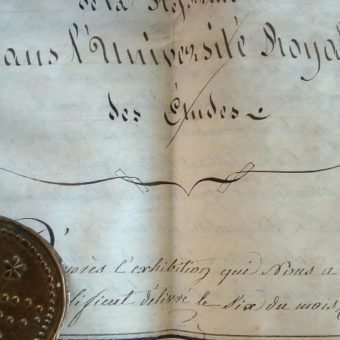 de la
ans l'Université Royal
des Études
D'
après l'exhibition qui Nous a
tificat délivré le Six du mois